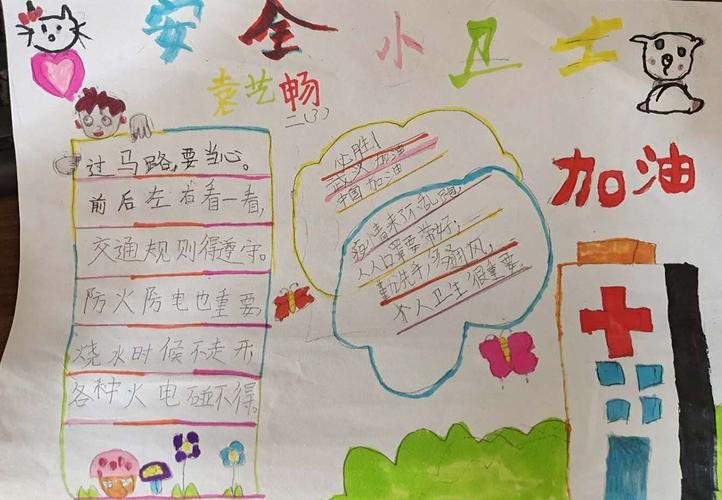 安全小卫士
袁艺畅
二(3)
过马路,要当心。
前后左右看一看,
交通规则得遵守。
防火防电也重要,
烧水时候不走开,
各种火电碰不得。
必胜!
武汉加油
中国加油
疫情来了不乱跑,
人人口罩要带好;
勤洗手,多通风,
个人卫生很重要.
加油